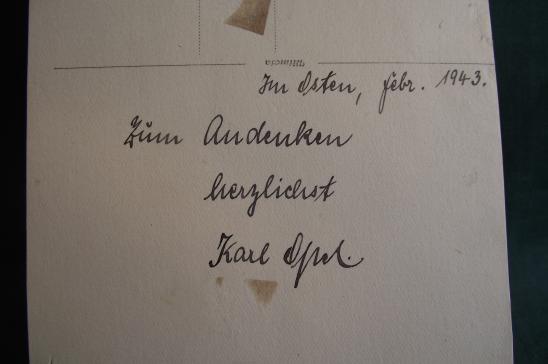 Mimosa
Im Osten, febr. 1943.
Zum Andenken
herzlichst
Karl Opel.